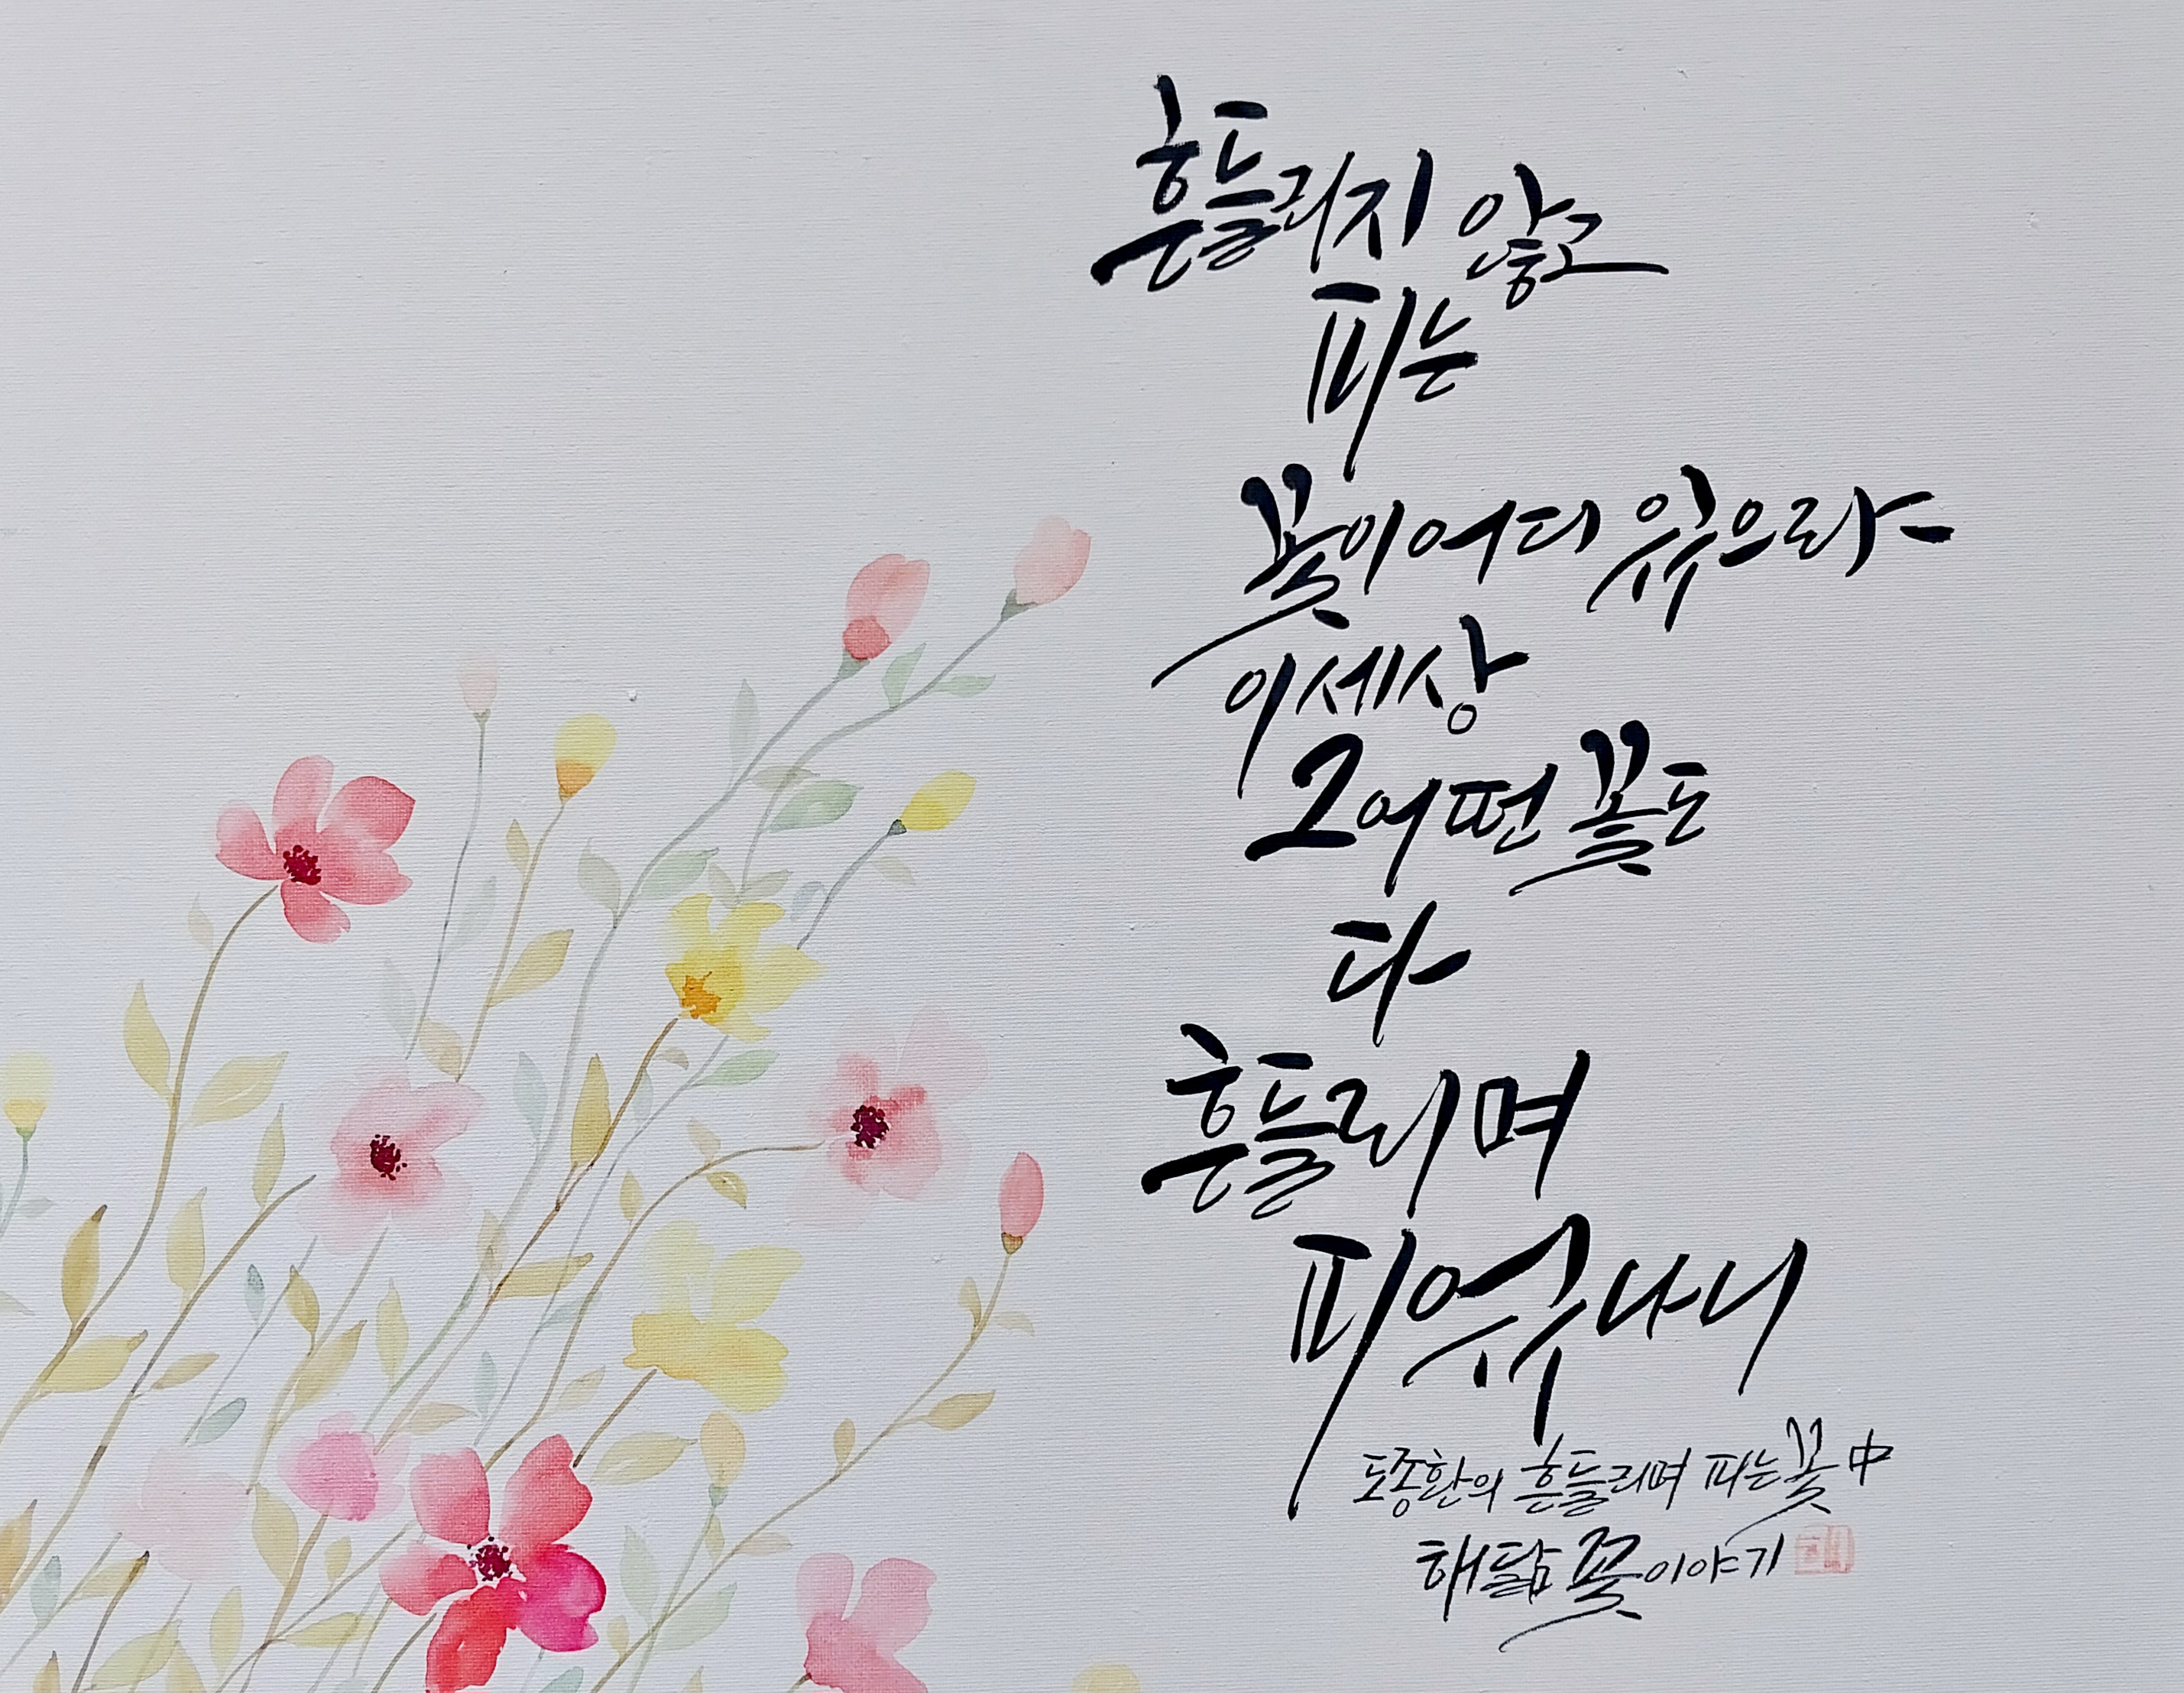 흔들리지 않고
피는
꽃이 어디 있으랴
이 세상
그 어떤 꽃도
다
흔들리며
피었나니
도종환의 흔들리며 피는 꽃 中
해닮 꽃이야기